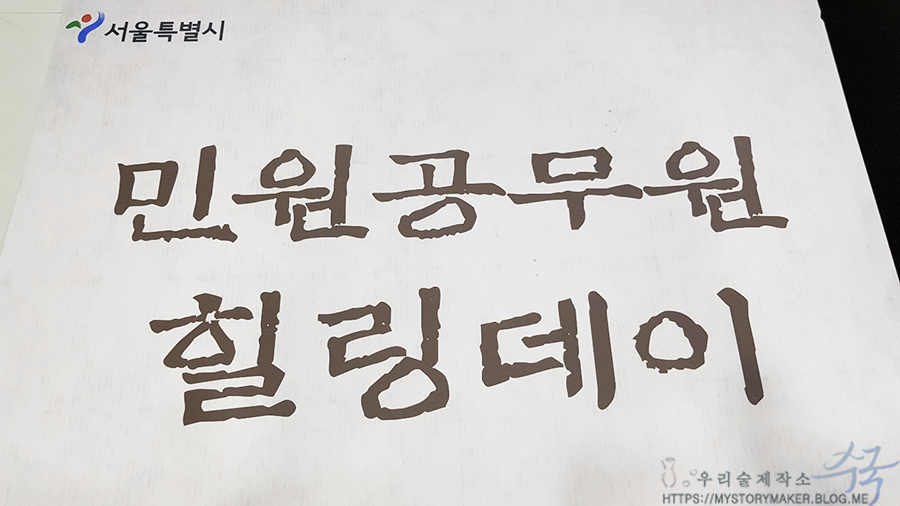 서울특별시
민원공무원
힐링데이
우리술제작소 수국
HTTPS://MYSTORYMAKER.BLOG.ME